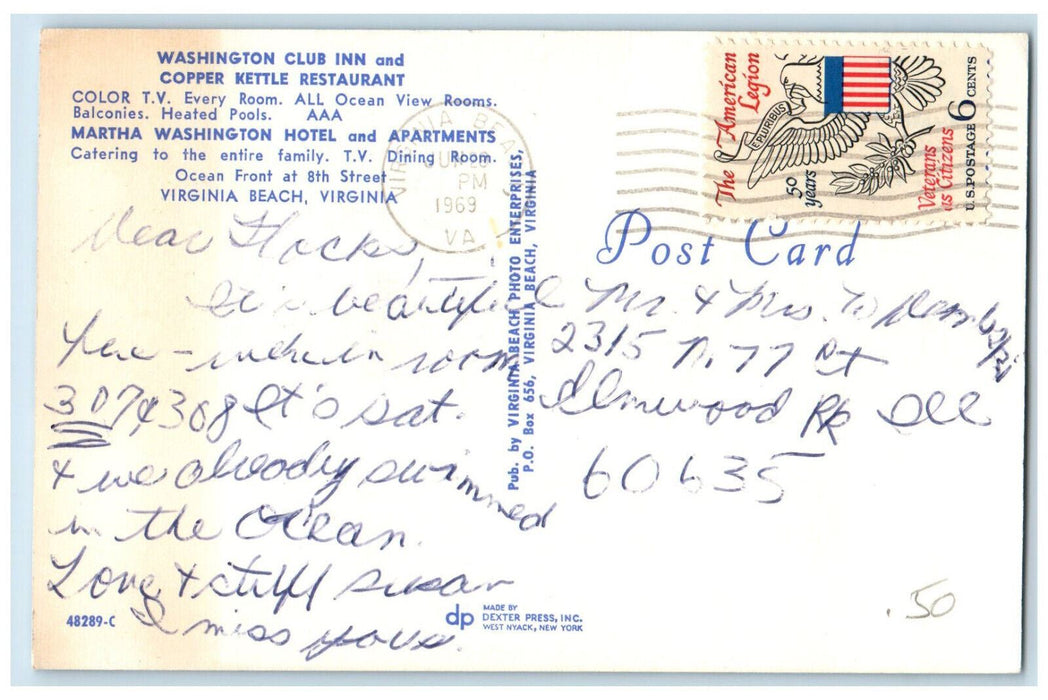 WASHINGTON CLUB INN and
COPPER KETTLE RESTAURANT
COLOR T.V. Every Room. ALL Ocean View Rooms.
Balconies. Heated Pools. AAA
MARTHA WASHINGTON HOTEL and APARTMENTS
Catering to the entire family. T.V. Dining Room.
Ocean Front at 8th Street
VIRGINIA BEACH, VIRGINIA
Dear
It's beautiful
here - we're in room
307 & 308 It's sat.
& we already swimmed
in the Ocean.
Love & stuff susan
I miss youse.
48289-C
VIRGINIA BEACH
PM
1969
VA
Pub. by VIRGINIA BEACH PHOTO ENTERPRISES,
P.O. Box 656, VIRGINIA BEACH, VIRGINIA
dp MADE BY
DEXTER PRESS, INC.
WEST NYACK, NEW YORK
The American
Legion
E PLURIBUS
50
years
Veterans
as Citizens
U.S. POSTAGE 6 CENTS
Post Card
Mr. & Mrs.
2315 N. 77 Ct
Elmwood Pk Ill
60635
.50